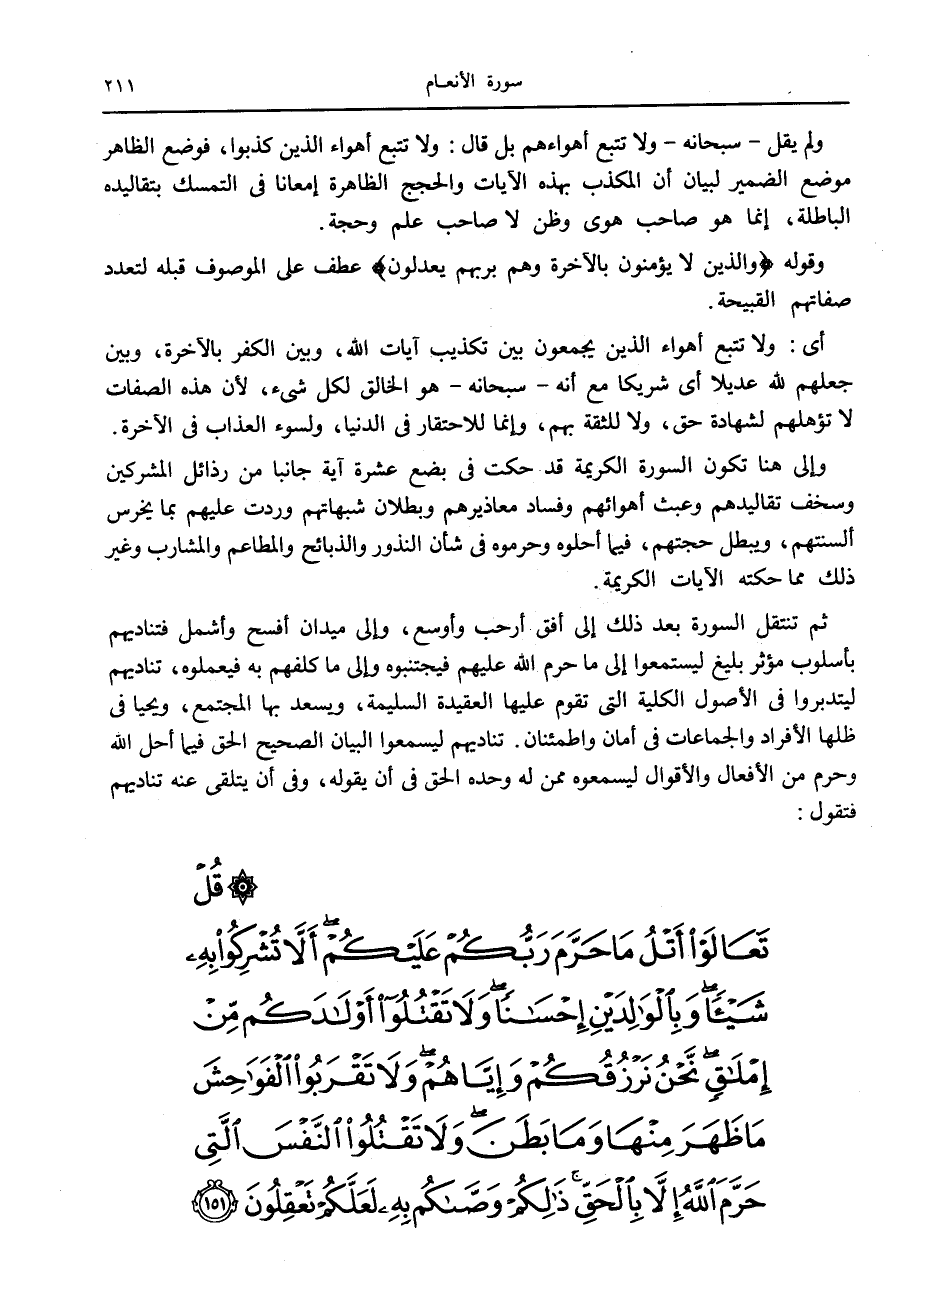 سورة الأنعـام
٢١١
ولم يقل - سبحانه - ولا تتبع أهواءهم بل قال : ولا تتبع أهواء الذين كذبوا، فوضع الظاهر
موضع الضمير لبيان أن المكذب بهذه الآيات والحجج الظاهرة إمعانا فى التمسك بتقاليده
الباطلة، إنما هو صاحب هوى وظن لا صاحب علم وحجة.
وقوله ﴿والذين لا يؤمنون بالآخرة وهم بربهم يعدلون﴾ عطف على الموصوف قبله لتعدد
صفاتهم القبيحة.
أى : ولا تتبع أهواء الذين يجمعون بين تكذيب آيات الله، وبين الكفر بالآخرة، وبين
جعلهم لله عديلا أى شريكا مع أنه - سبحانه - هو الخالق لكل شىء، لأن هذه الصفات
لا تؤهلهم لشهادة حق، ولا للثقة بهم، وإنما للاحتقار فى الدنيا، ولسوء العذاب فى الآخرة.
وإلى هنا تكون السورة الكريمة قد حكت فى بضع عشرة آية جانبا من رذائل المشركين
وسخف تقاليدهم وعبث أهوائهم وفساد معاذيرهم وبطلان شبهاتهم وردت عليهم بما يخرس
ألسنتهم، ويبطل حجتهم، فيما أحلوه وحرموه فى شأن النذور والذبائح والمطاعم والمشارب وغير
ذلك مما حكته الآيات الكريمة.
ثم تنتقل السورة بعد ذلك إلى أفق أرحب وأوسع، وإلى ميدان أفسح وأشمل فتناديهم
بأسلوب مؤثر بليغ ليستمعوا إلى ما حرم الله عليهم فيجتنبوه وإلى ما كلفهم به فيعملوه، تناديهم
ليتدبروا فى الأصول الكلية التى تقوم عليها العقيدة السليمة، ويسعد بها المجتمع، ويحيا فى
ظلها الأفراد والجماعات فى أمان واطمئنان. تناديهم ليسمعوا البيان الصحيح الحق فيما أحل الله
وحرم من الأفعال والأقوال ليسمعوه ممن له وحده الحق فى أن يقوله، وفى أن يتلقى عنه تناديهم
فتقول :
۞ قُلۡ
تَعَالَوۡاْ أَتۡلُ مَا حَرَّمَ رَبُّكُمۡ عَلَيۡكُمۡۖ أَلَّا تُشۡرِكُواْ بِهِۦ
شَيۡـٔٗاۖ وَبِٱلۡوَٰلِدَيۡنِ إِحۡسَٰنٗاۖ وَلَا تَقۡتُلُوٓاْ أَوۡلَٰدَكُم مِّنۡ
إِمۡلَٰقٖۖ نَّحۡنُ نَرۡزُقُكُمۡ وَإِيَّاهُمۡۖ وَلَا تَقۡرَبُواْ ٱلۡفَوَٰحِشَ
مَا ظَهَرَ مِنۡهَا وَمَا بَطَنَۖ وَلَا تَقۡتُلُواْ ٱلنَّفۡسَ ٱلَّتِي
حَرَّمَ ٱللَّهُ إِلَّا بِٱلۡحَقِّۚ ذَٰلِكُمۡ وَصَّىٰكُم بِهِۦ لَعَلَّكُمۡ تَعۡقِلُونَ ١٥١